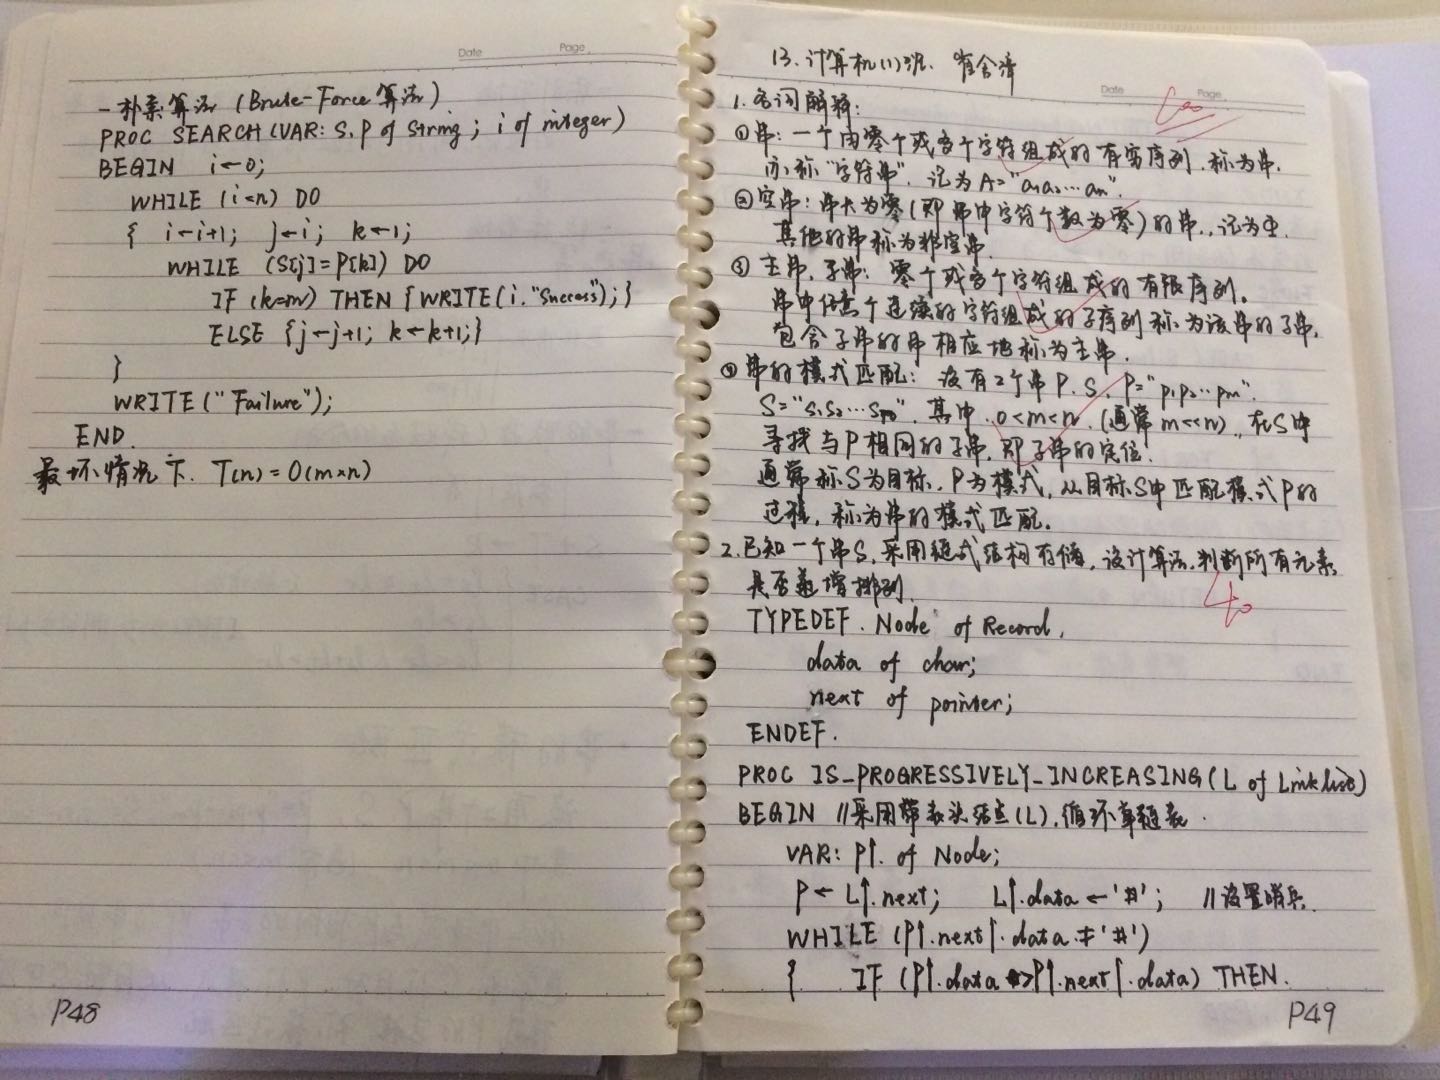 Date Page
一朴素算法 (Brute-Force 算法)
PROC SEARCH (VAR: S, P of String; i of integer)
BEGIN i←0;
WHILE (i=n) DO
{ i←i+1; j←i; k←1;
WHILE (S[j]=P[k]) DO
IF (k=m) THEN {WRITE(i,"Success");}
ELSE {j←j+1; k←k+1;}
}
WRITE("Failure");
END.
最坏情况下. T(n)=O(m×n)
P48
13.计算机(1)班.
Date Page
1.名词解释:
①串:一个由零个或多个字符组成的有穷序列.称为串.
亦称"字符串".记为A="a₁a₂…aₙ".
②空串:串长为零(即串中字符个数为零)的串.,记为Φ.
其他的串称为非空串.
③主串,子串:零个或多个字符组成的有限序列.
串中任意个连续的字符组成的子序列称为该串的子串,
包含子串的串相应地称为主串.
④串的模式匹配:设有2个串P.S, P="p₁p₂…pm".
S="s₁s₂…sn",其中.0<m<n.(通常m<<n).,在S中
寻找与P相同的子串,即子串的定位.
通常称S为目标,P为模式,从目标S中匹配模式P的
过程,称为串的模式匹配.
2.已知一个串S,采用链式结构存储,设计算法,判断所有元素
是否递增排列.
40
TYPEDEF. Node of Record,
data of char;
next of pointer;
ENDEF.
PROC IS_PROGRESSIVELY_INCREASING(L of Linklist)
BEGIN //采用带表头结点(L),循环单链表.
VAR: P↑. of Node;
P←L↑.next; L↑.data←'#'; //设置哨兵.
WHILE (P↑.next↑.data≠'#')
{ IF (P↑.data >P↑.next↑.data) THEN.
P49